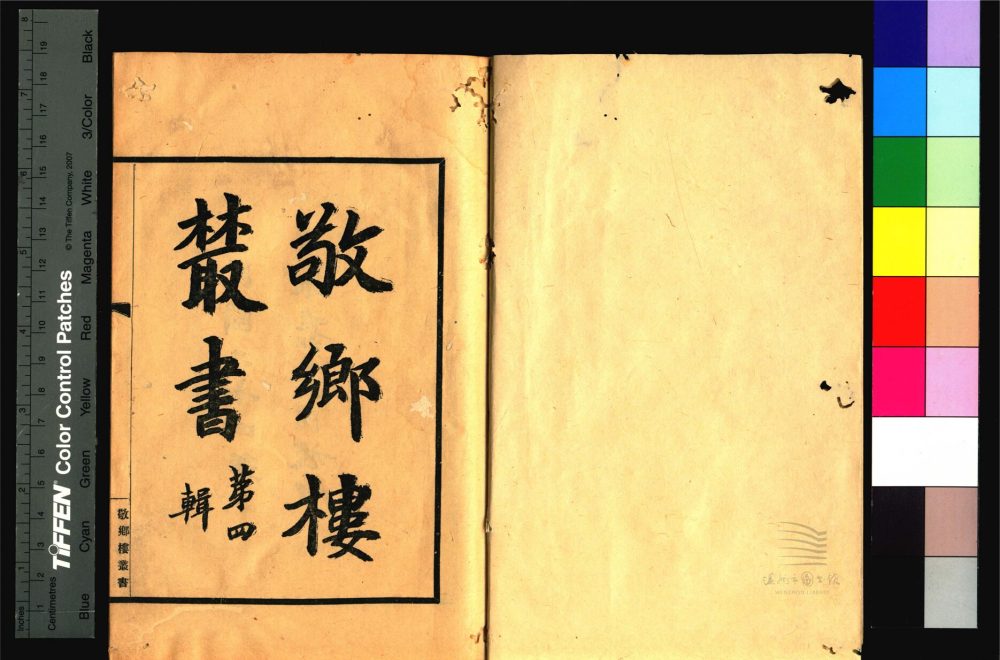 敬鄉樓
叢書
第四
輯
敬鄉樓叢書
溫州市圖書館
WENZHOU LIBRARY
TIFFEN® Color Control Patches
© The Tiffen Company, 2007
Blue Cyan Green Yellow Red Magenta White 3/Color Black
Inches
1 2 3 4 5 6 7 8
Centimetres
1 2 3 4 5 6 7 8 9 10 11 12 13 14 15 16 17 18 19